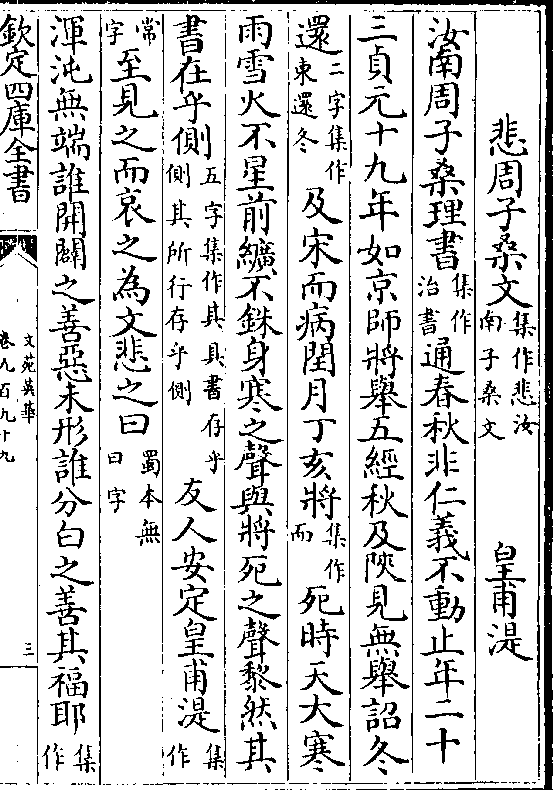 悲周子桑文集作悲汝南子桑文　皇甫湜
汝南周子桑理書集作治書通春秋非仁義不動止年二十
三貞元十九年如京師將舉五經秋及陜見無舉詔冬
還二字集作東還冬及宋而病閏月丁亥將集作而死時天大寒
雨雪火不星前纊不銖身寒之聲與將死之聲黎然其
書在乎側五字集作其具書存乎側其所行存乎側友人安定皇甫湜集作
常字至見之而哀之為文悲之曰蜀本無曰字
渾沌無端誰開闢之善惡未形誰分白之善其福耶集作
欽定四庫全書
文苑英華
卷九百九十九
三